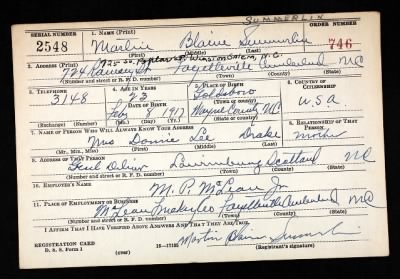 SUMMERLIN
SERIAL NUMBER
ORDER NUMBER
2548
1. NAME (Print)
Marlin Blaine Summerlin
746
(First) (Middle) (Last)
725 So. Poplar St. Winston Salem, N.C.
2. ADDRESS (Print)
724 Ramsey St Fayetteville Cumberland NC
(Number and street or R. F. D. number) (Town) (County) (State)
3. TELEPHONE
4. AGE IN YEARS
5. PLACE OF BIRTH
6. COUNTRY OF CITIZENSHIP
3148
23
Goldsboro
DATE OF BIRTH
(Town or county)
USA
Feby 8 1917
Wayne County NC
(Exchange) (Number)
(Mo.) (Day) (Yr.)
(State or country)
7. NAME OF PERSON WHO WILL ALWAYS KNOW YOUR ADDRESS
8. RELATIONSHIP OF THAT PERSON
Mrs Donnie Lee Drake
Mother
(Mr., Mrs., Miss) (First) (Middle) (Last)
9. ADDRESS OF THAT PERSON
Laurinburg Scotland NC
(Number and street or R. F. D. number) (Town) (County) (State)
10. EMPLOYER'S NAME
M. P. McLean Jr
11. PLACE OF EMPLOYMENT OR BUSINESS
McLean Trucking Co Fayetteville Cumberland NC
(Number and street or R. F. D. number) (Town) (County) (State)
I AFFIRM THAT I HAVE VERIFIED ABOVE ANSWERS AND THAT THEY ARE TRUE.
REGISTRATION CARD
D. S. S. Form 1
(over)
16—17105
Summerlin
(Registrant's signature)